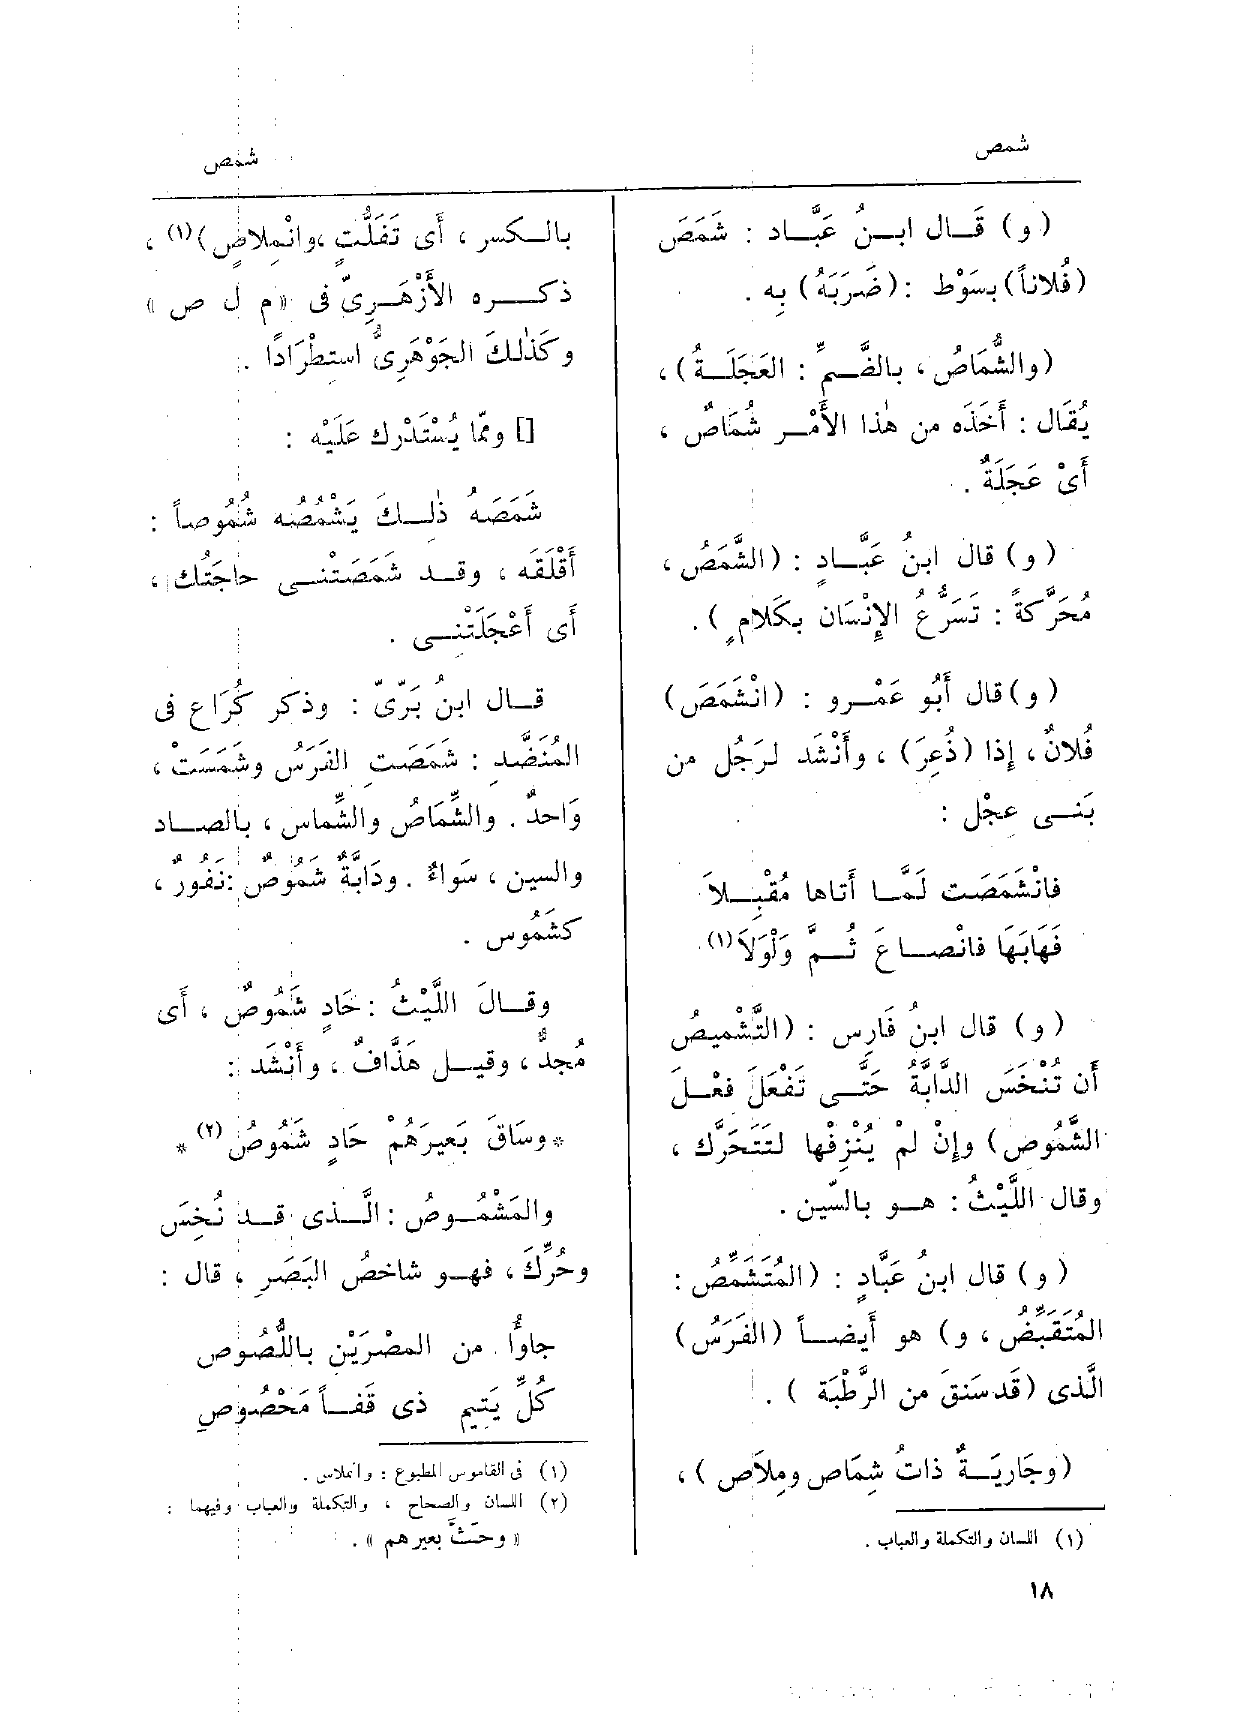 شمص
شمص
(و) قَــال ابــنُ عَبَّــاد : شَمَصَ
(فُلاناً) بسَوْط : (ضَرَبَهُ) بِه .
(والشُّمَاصُ ، بالضَّــمِّ : العَجَلَــةُ) ،
يُقَال : أَخَذَه من هٰذا الأَمْــرِ شُمَاصٌ ،
أَىْ عَجَلَةٌ .
(و) قال ابنُ عَبَّــادٍ : (الشَّمَصُ ،
مُحَرَّكةً : تَسَرُّعُ الإِنْسَان بكَلامٍ ) .
(و) قال أَبُو عَمْــرو : (انْشَمَصَ)
فُلانٌ ، إِذا (ذُعِرَ) ، وأَنْشَد لرَجُل من
بَنــى عِجْل :
فانْشَمَصَت لَمَّــا أَتاها مُقْبِــلاَ
فَهَابَهَا فانْصــاعَ ثُــمَّ وَلْوَلاَ(١)
(و) قال ابنُ فَارِس : (التَّشْمِيصُ
أَن تُنْخَسَ الدَّابَّةُ حَتَّــى تَفْعَلَ فعْــلَ
الشَّمُوص) وإِنْ لمْ يُنْزِفْها لتَتَحَرَّك ،
وقال اللَّيْثُ : هــو بالسِّين .
(و) قال ابنُ عَبَّادٍ : (المُتَشَمِّصُ :
المُتَقَبِّضُ ، و) هو أَيضــاً (الفَرَسُ)
الَّذى (قَد سَنِقَ من الرَّطْبَة ) .
(وجَاريَــةٌ ذاتُ شِمَاص ومِلاَص ) ،
(١) اللسان والتكملة والعباب .
١٨
بالــكسر ، أَى تَفَلُّتٍ ،وانْمِلاصٍ)(١) ،
ذكــره الأَزْهَــرِىّ فى «م ل ص»
وكَذٰلكَ الجَوْهَرِىُّ استطْرَادًا .
[] وممّا يُسْتَدْرك عَلَيْه :
شَمَصَهُ ذٰلــكَ يَشْمُصُه شُمُوصاً :
أَقْلَقَه ، وقــد شَمَصَتْنــى حاجَتُك ،
أَى أَعْجَلَتْنــى .
قــال ابنُ بَرّىّ : وذكر كُرَاع فى
المُنَضَّد : شَمَصَتِ الفَرَسُ وشَمَسَتْ ،
وَاحدٌ . والشِّمَاصُ والشِّماس ، بالصــاد
والسين ، سَواءٌ . ودَابَّةٌ شَمُوصٌ :نَفُورٌ ،
كشَمُوس .
وقــالَ اللَّيْثُ : حَادٍ شَمُوصٌ ، أَى
مُجدٌّ ، وقيــل هَذَّافٌ ، وأَنْشَد :
* وسَاقَ بَعيرَهُمْ حَادٍ شَمُوصُ (٢) *
والمَشْمُــوصُ : الَّــذى قــد نُخِسَ
وحُرِّكَ ، فهــو شاخصُ البَصَرِ ، قال :
جاوُّا من المصْرَيْنِ باللُّصُوصِ
كُلِّ يَتِيمٍ ذى قَفــاً مَحْصُوصِ
(١) فى القاموس المطبوع : وانملاس .
(٢) اللسان والصحاح ، والتكملة والعباب وفيهما :
« وحَثَّ بعيرهم » .